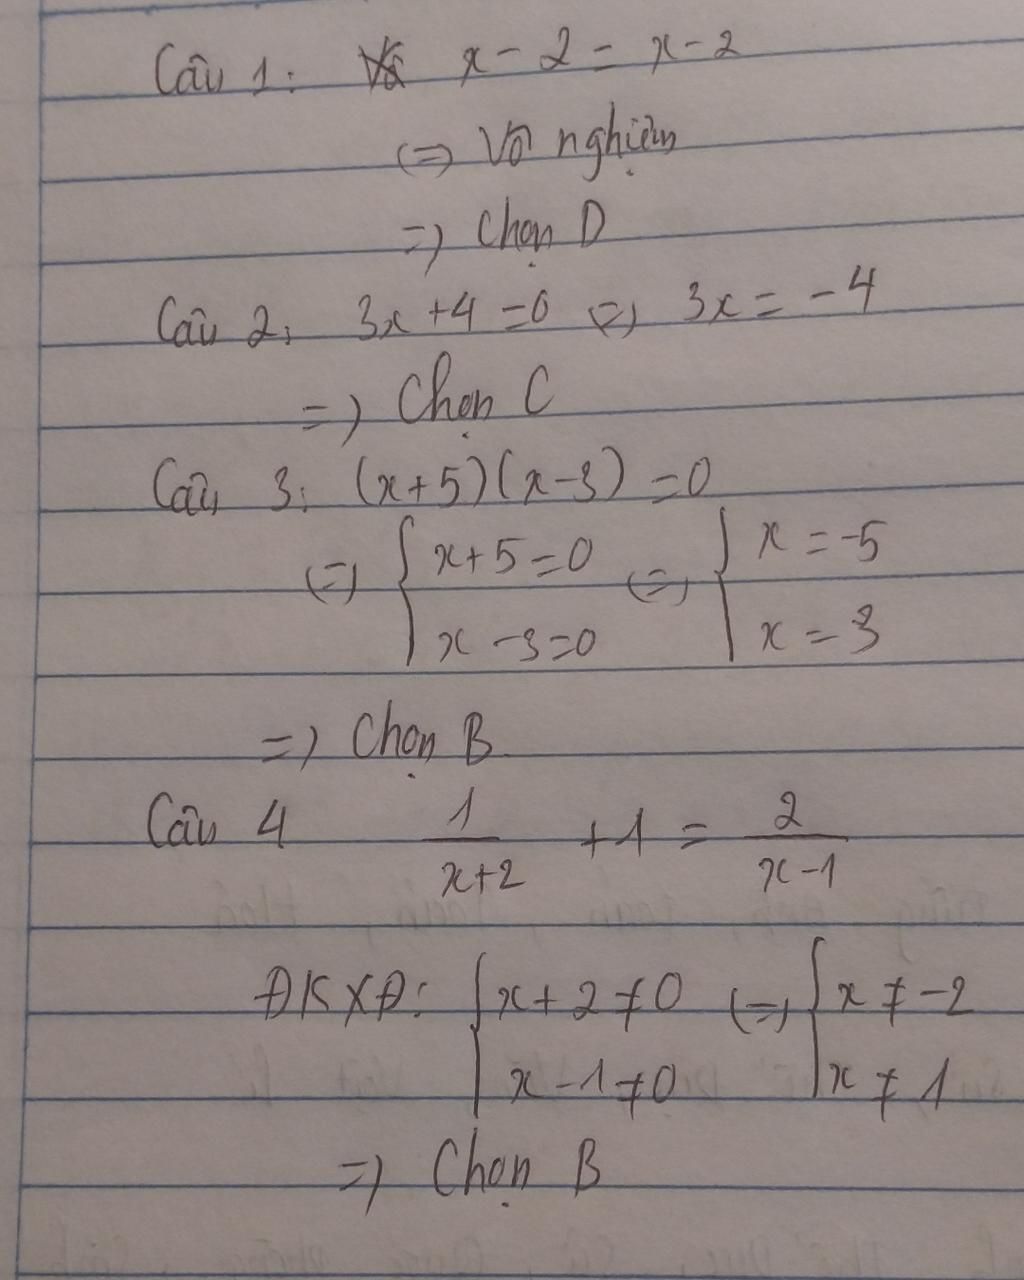 Câu 1: x - 2 = x - 2
<=> Vô nghiệm
=> Chọn D
Câu 2: 3x + 4 = 0 <=> 3x = -4
=> Chọn C
Câu 3: (x+5)(x-3) = 0
<=> { x+5=0 <=> { x = -5
x - 3=0 x = 3
=> Chọn B
Câu 4 1/(x+2) + 1 = 2/(x-1)
ĐKXĐ: { x + 2 ≠ 0 <=> { x ≠ -2
x - 1 ≠ 0 x ≠ 1
=> Chọn B